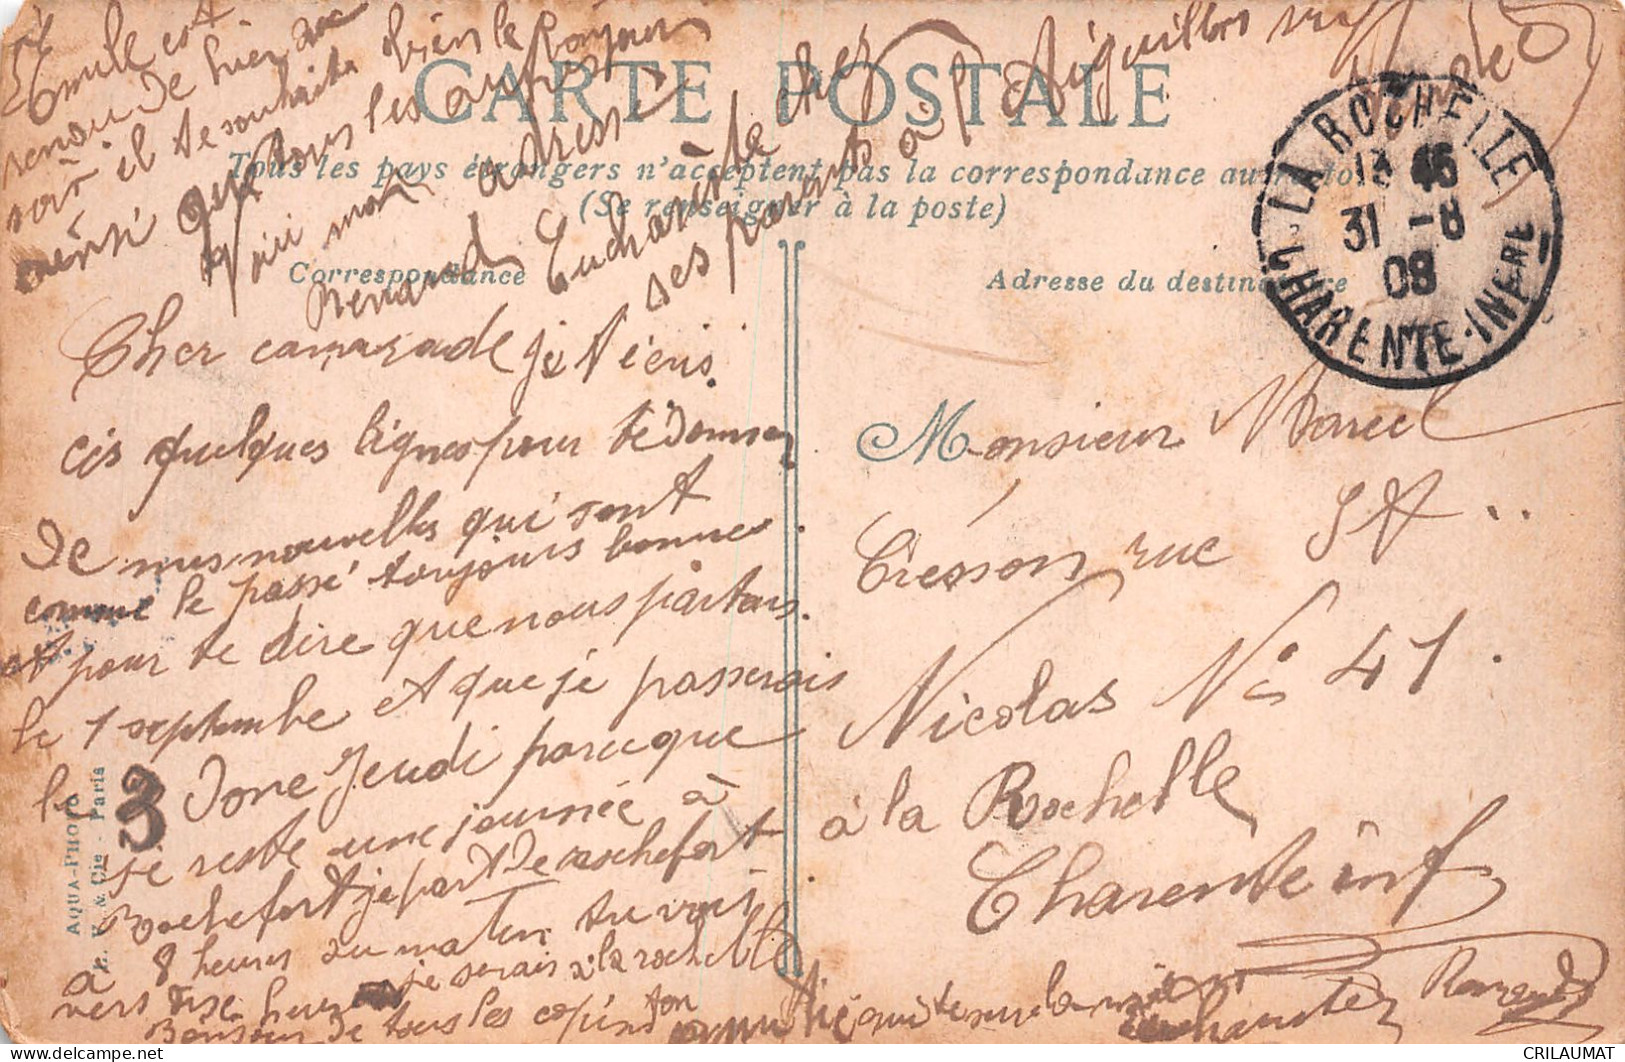 Emile est
venu de hier au
soir il te souhaite bien le bonjour
ainsi que tous les autres
Voici mon adresse
Renaud Euchariste chez
ses parents à l'Aiguillon sur
CARTE POSTALE
Tous les pays étrangers n'acceptent pas la correspondance au recto
(Se renseigner à la poste)
Correspondance
Adresse du destinataire
LA ROCHELLE
13 45
31 -8
08
CHARENTE-INFRE
Cher camarade je t'écris
cis quelques lignes pour te donner
de mes nouvelles qui sont
comme le passé toujours bonnes
et pour te dire que nous partons
le 1 septembre et que je passerais
le 3 donc Jeudi parceque
je reste une journée à
Rochefort je part de roschefort
à 8 heures du matin tu vois
vers heures je serais à la rochelle
Bonsoir de tous les copins ton
ami qui te serre la main
Renaud
Monsieur Marcel
Cresson rue St ..
Nicolas No 41.
à la Rochelle
Charente inf
AQUA-PHOTO
& Cie - Paris
CRILAUMAT